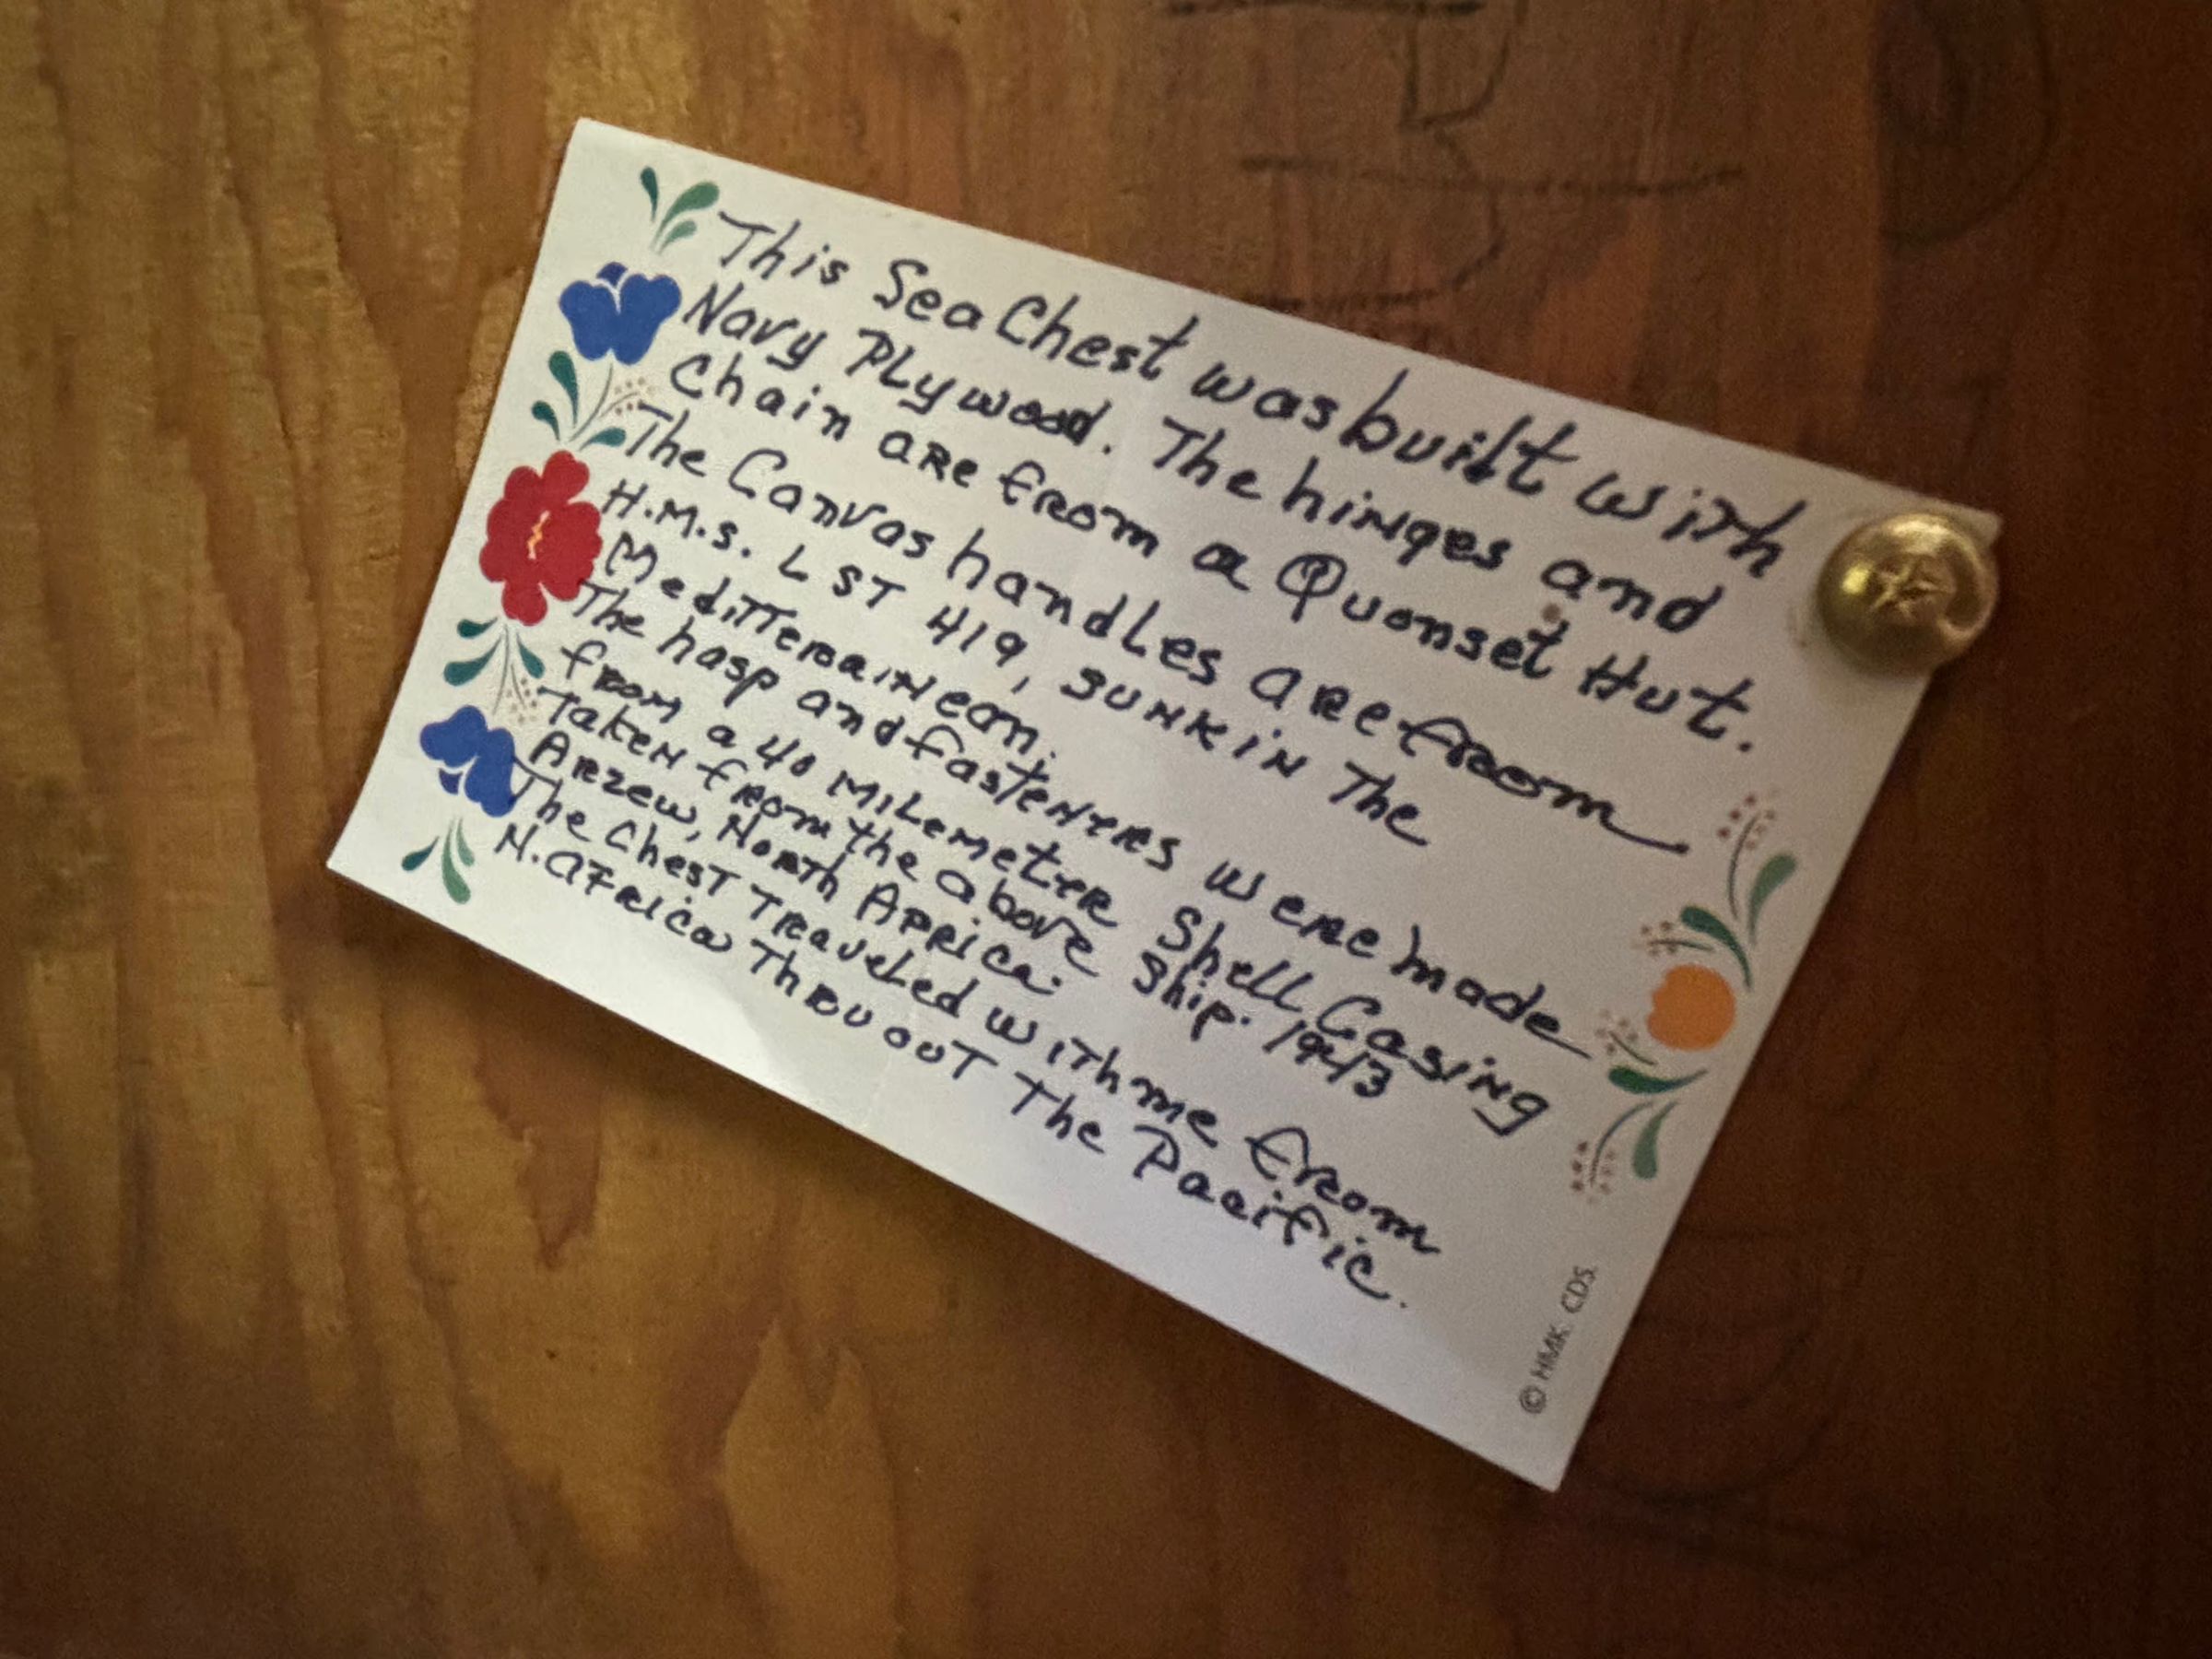 This Sea Chest was built with
Navy Plywood. The hinges and
Chain are from a Quonset Hut.
The Canvas handles are from
H.M.S. LST 419, sunk in the
Mediterrainean.
The hasp and fasteners were made
from a 40 Milemeter Shell Casing
Taken from the above Ship. 1943
Arzew, North Africa.
The Chest Traveled with me from
N. Africa Thru out The Pacific.
© HMK. CDS.